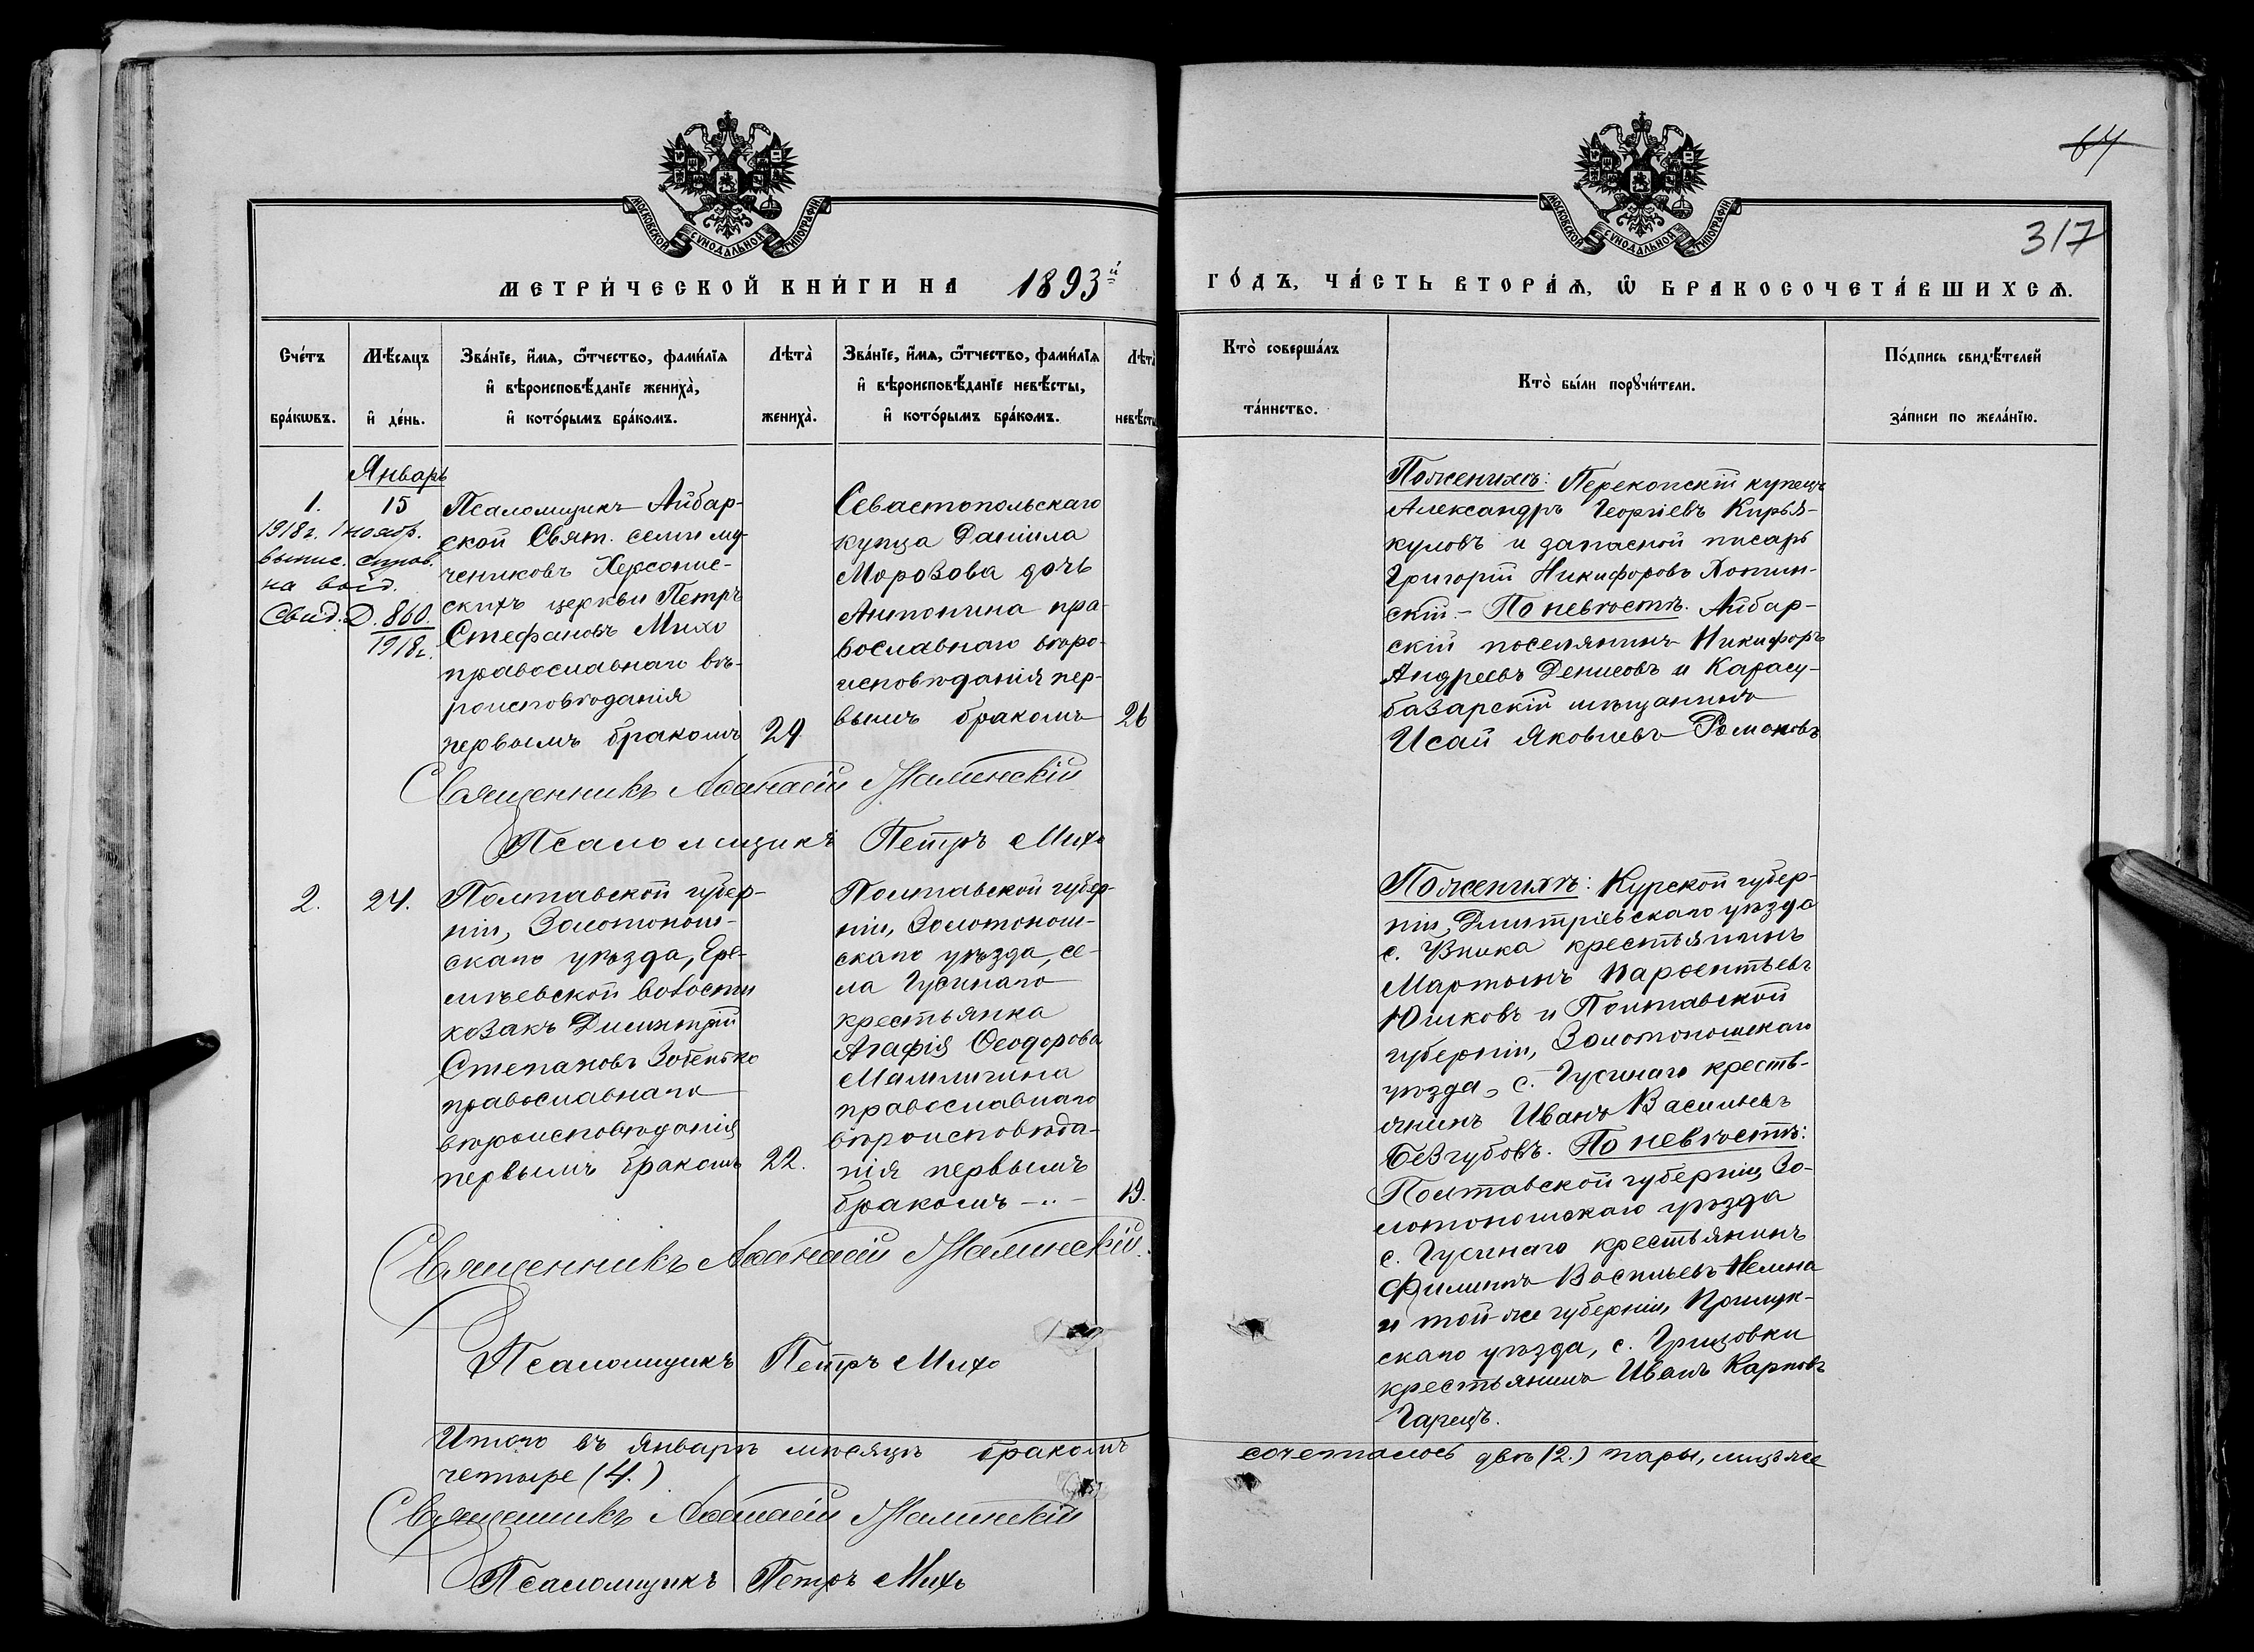 64
317
МОСКОВСКОЙ СѴНОДАЛЬНОЙ ТИПОГРАФІИ
МОСКОВСКОЙ СѴНОДАЛЬНОЙ ТИПОГРАФІИ
МЕТРИ́ЧЕСКОЙ КНИ́ГИ НА 1893й
ГО́ДЪ, ЧА́СТЬ ВТОРА́Ѧ, Ѡ҆ БРАКОСОЧЕТА́ВШИХСѦ.
Сче́тъ
бра́кѡвъ.
Мѣ́сяцъ
и҆ де́нь.
Зва́нїе, и҆́мя, ѻ҆́тчество, фами́лїя
и҆ вѣроисповѣ́данїе жениха̀,
и҆ кото́рымъ бра́комъ.
Лѣта̀
жениха̀.
Зва́нїе, и҆́мя, ѻ҆́тчество, фами́лїя
и҆ вѣроисповѣ́данїе невѣ́сты,
и҆ кото́рымъ бра́комъ.
Лѣта̀
невѣ́сты
Кто̀ соверша́лъ
та́инство.
Кто̀ бы́ли порꙋчи́тели.
По́дпись свидѣ́телей
за́писи по жела́нїю.
Январь
1.
15
1918г. 1 нояб.
выпис. справ.
на
Свид. Д. 860.
1918г.
Псаломщикъ Айбар-
ской Свят. семи му-
чениковъ Херсонис-
скихъ церкви Петръ
Стефановъ Михо
православнаго вѣ-
роисповѣданія
первымъ бракомъ
29
Севастопольскаго
купца Даніила
Морозова дочь
Антонина пра-
вославнаго вѣро-
исповѣданія пер-
вымъ бракомъ
26
По женихѣ: Перекопскій купецъ
Александръ Георгіевъ Кирья-
куловъ и запасной писарь
Григорій Никифоровъ Хотин-
скій.- По невѣстѣ. Айбар-
скій поселянинъ Никифоръ
Андреевъ Денисовъ и Карасу-
базарскій мѣщанинъ
Исай Яковлевъ Романовъ
Священникъ Аѳанасій
Псаломщикъ Петръ Михо
2.
24.
Полтавской губер-
ніи, Золотонош-
скаго уѣзда, Ере-
мѣевской волости
козакъ Димитрій
Степановъ
православнаго
вѣроисповѣданія
первымъ бракомъ
22.
Полтавской губер-
ніи, Золотонош-
скаго уѣзда, се-
ла Гусинаго
крестьянка
Агафія Ѳеодорова
православнаго
вѣроисповѣда-
нія первымъ
бракомъ -..-
19.
По женихѣ: Курской губер-
ніи, Дмитріевскаго уѣзда
с. крестьянинъ
Мартынъ Парѳентьевъ
Юшковъ и Полтавской
губерніи, Золотоношскаго
уѣзда, с. Гусинаго кресть-
янинъ Иванъ Васильевъ
Безгубовъ. По невѣстѣ:
Полтавской губерніи, Зо-
лотоношскаго уѣзда
с. Гусинаго крестьянинъ
Филиппъ Васильевъ
и той-же губерніи, Прилук-
скаго уѣзда, с. Грицовки
крестьянинъ Иванъ Карповъ
Гарецъ.
Священникъ Аѳанасій
Псаломщикъ Петръ Михо
Итого въ Январѣ мѣсяцѣ бракомъ сочеталось двѣ (2.) пары, лицъ же
четыре (4.)
Священникъ Аѳанасій
Псаломщикъ Петръ Михо